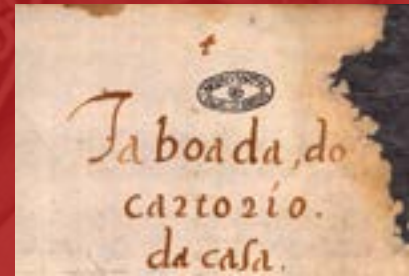 Taboada, do
cartorio.
da casa.